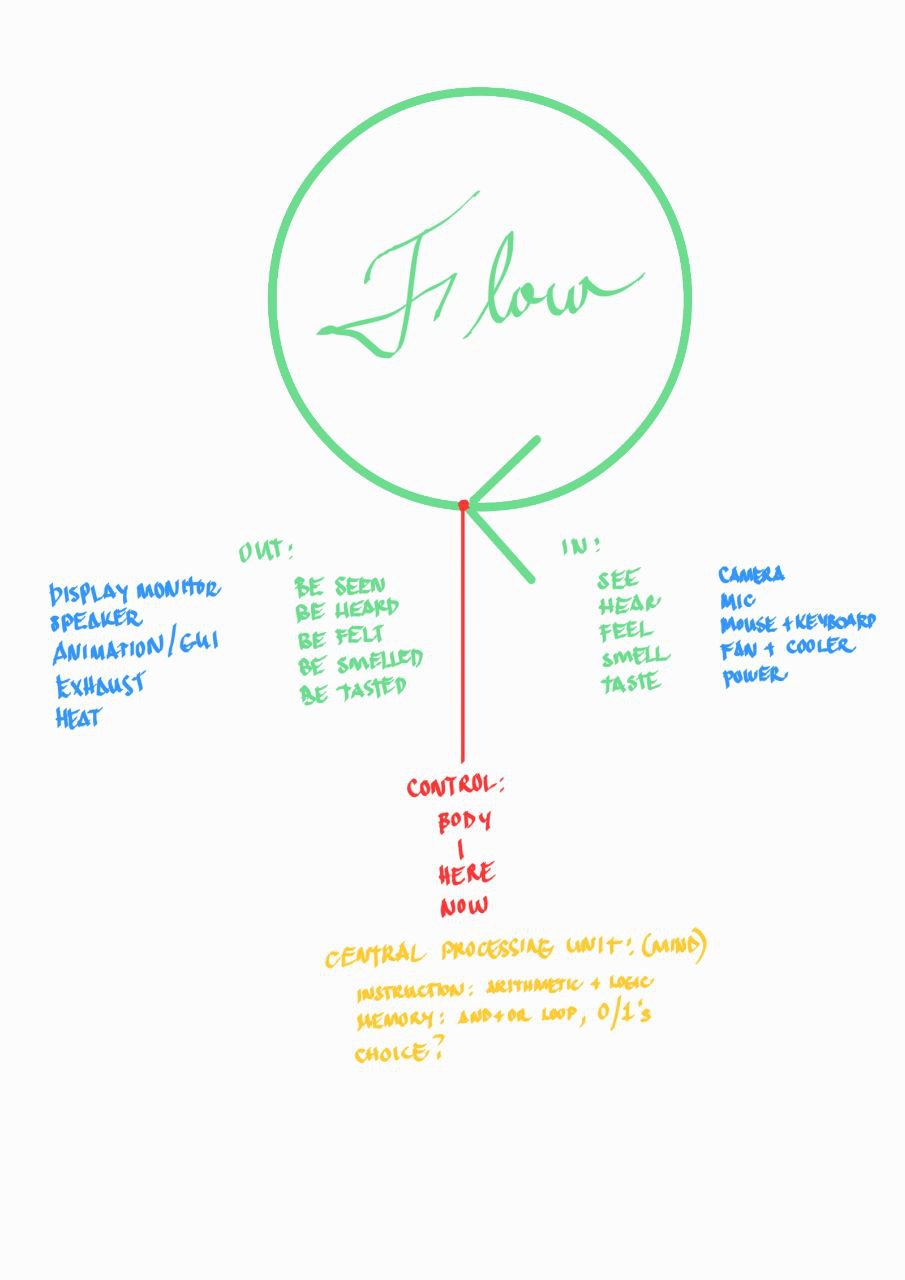 Flow
OUT:
DISPLAY MONITOR
SPEAKER
ANIMATION/GUI
EXHAUST
HEAT
BE SEEN
BE HEARD
BE FELT
BE SMELLED
BE TASTED
IN:
SEE
HEAR
FEEL
SMELL
TASTE
CAMERA
MIC
MOUSE + KEYBOARD
FAN + COOLER
POWER
CONTROL:
BODY
I
HERE
NOW
CENTRAL PROCESSING UNIT: (MIND)
INSTRUCTION: ARITHMETIC + LOGIC
MEMORY: AND+OR LOOP, 0/1's
CHOICE?